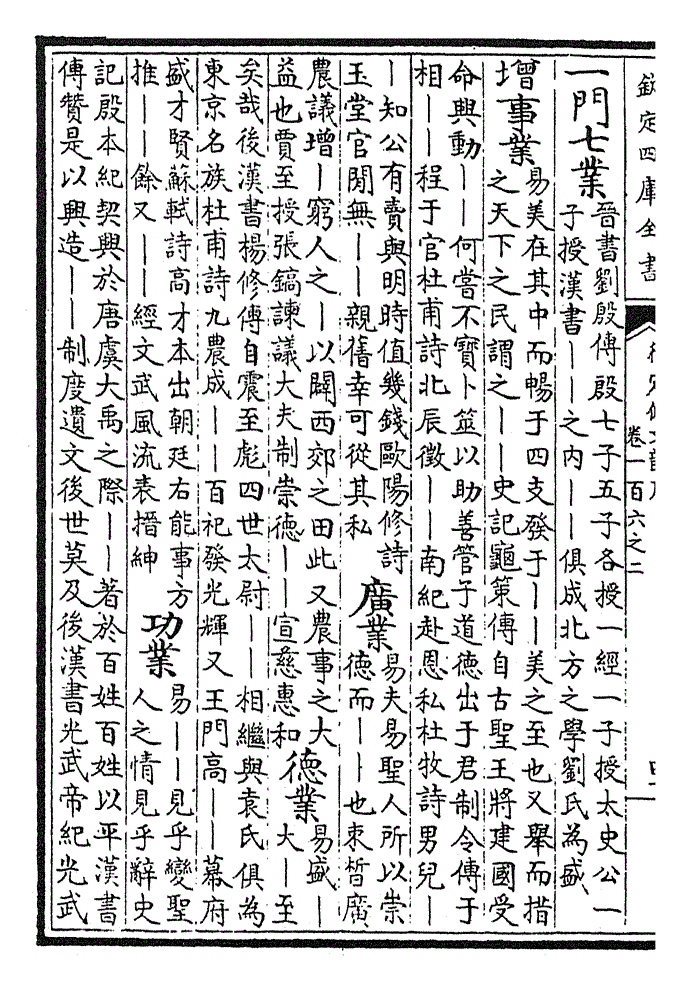 欽定四庫全書
卷一百六之二
一門七業
晉書劉殷傳殷七子五子各授一經一子授太史公一
子授漢書丨丨之内丨丨俱成北方之學劉氏為盛
增事業
易美在其中而暢于四支發于丨丨美之至也又舉而措
之天下之民謂之丨丨史記龜策傳自古聖王將建國受
命興動丨丨何嘗不寶卜筮以助善管子道德出于君制令傳于
相丨丨程于官杜甫詩北辰徵丨丨南紀赴恩私杜牧詩男兒丨
丨知公有賣與明時值幾錢歐陽修詩
玉堂官閒無丨丨親舊幸可從其私
廣業
易夫易聖人所以崇
德而丨丨也束晳廣
農議增丨窮人之丨以闢西郊之田此又農事之大
益也賈至授張鎬諫議大夫制崇德丨丨宣慈惠和
德業
易盛丨
大丨至
矣哉後漢書楊修傳自震至彪四世太尉丨丨相繼與袁氏俱為
東京名族杜甫詩九農成丨丨百祀發光輝又王門高丨丨幕府
盛才賢蘇軾詩高才本出朝廷右能事方
推丨丨餘又丨丨丨經文武風流表搢紳
功業
易丨丨見乎變聖
人之情見乎辭史
記殷本紀契興於唐虞大禹之際丨丨著於百姓百姓以平漢書
傳贊是以興造丨丨制度遺文後世莫及後漢書光武帝紀光武